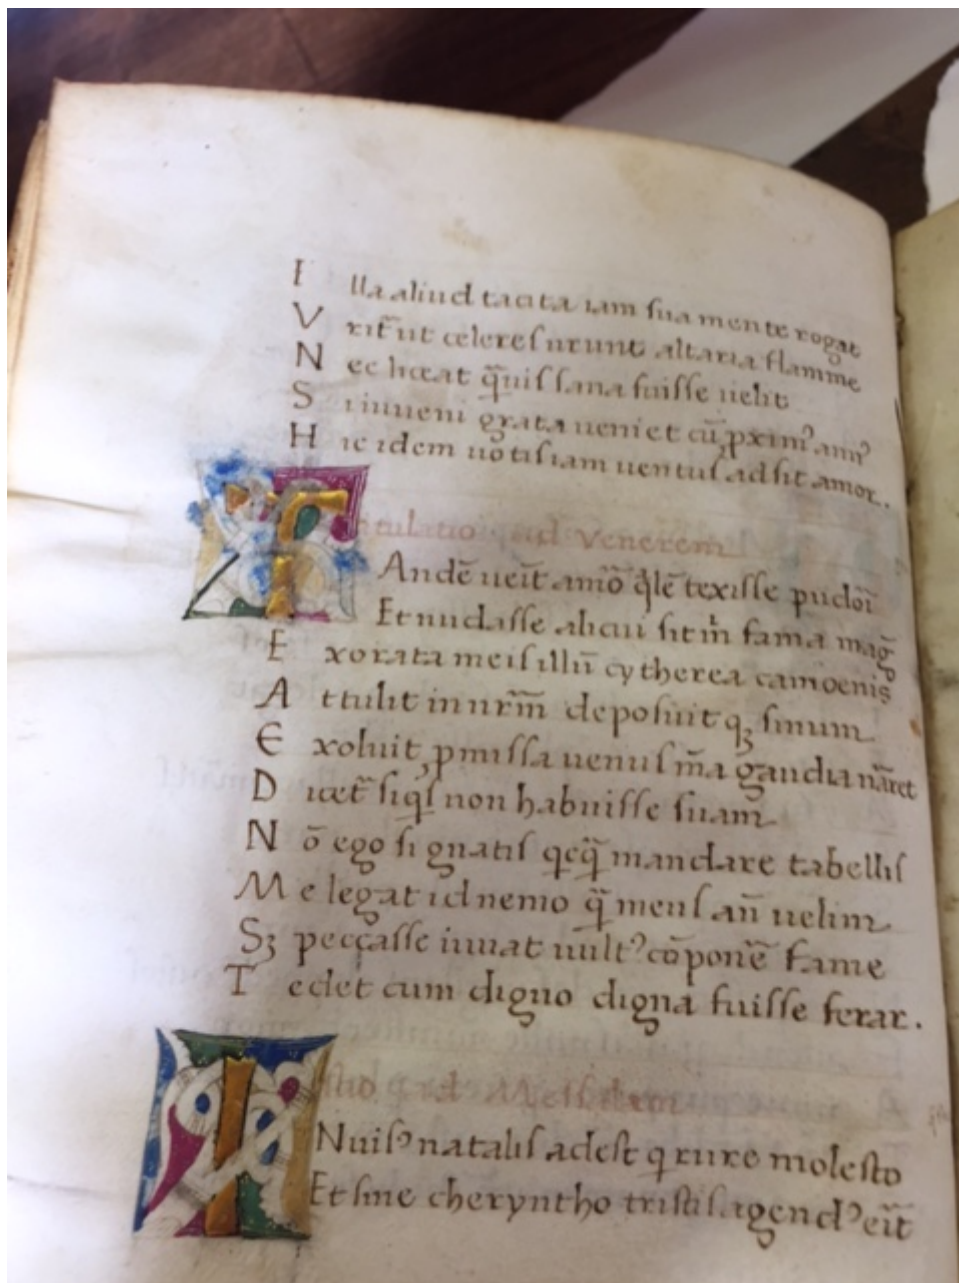 I lla aliud tacita iam sua mente rogat
V rit̃ ut celeres urunt altaria flamme
N ec liceat q̃uis sana fuisse uelit
S i iuueni grata ueniet cũ ꝓximꝰ annꝰ
H ic idem uotis iam uentus adsit amor.
ad Venerem
Andẽ ueit̃ amõ q̃lẽ texisse pudoĩ
Et nudasse alicui sit m̃ fama mag̃
E xorata meis illũ cytherea camoenis
A ttulit in nr̃m̃ deposuit qꝫ sinum
E xoluit ꝓmissa uenus m̃a gaudia nãret
D icet̃ siqͥs non habuisse suam
N õ ego signatis qcq̃ mandare tabellis
M e legat id nemo q̃ meus añ uelim
Sꝫ peccasse iuuat uultꝰ cõponẽ fame
T edet cum digno digna fuisse ferar.
ad
INuisꝰ natalis adest q rure molesto
Et sine cheryntho tristis agendꝰ eĩt